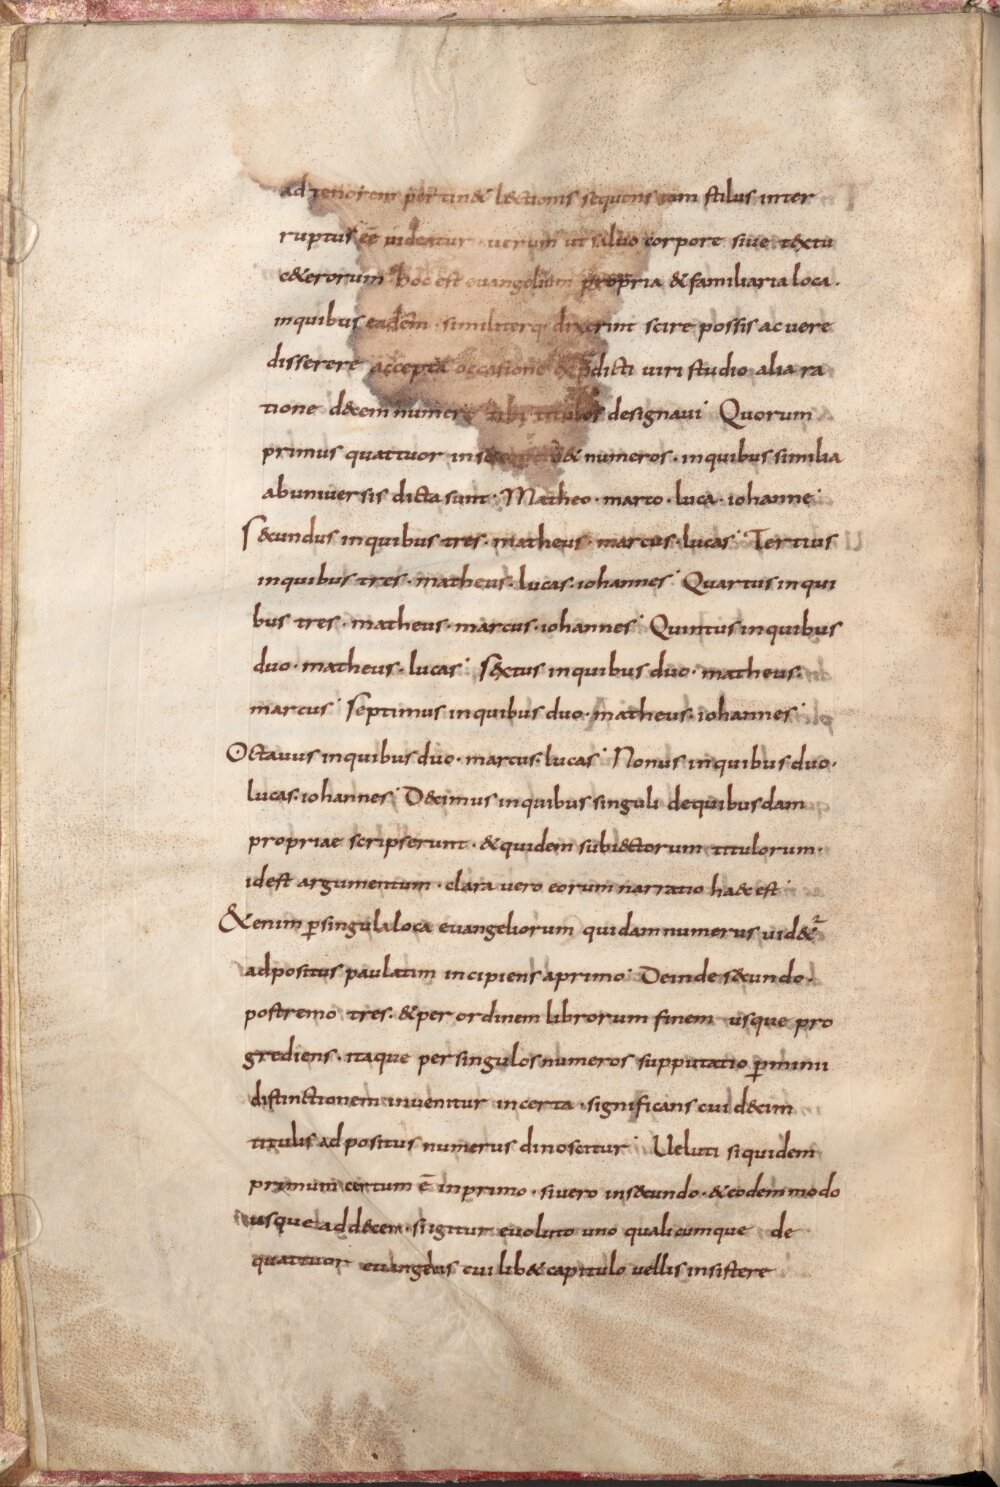 ad tenorem pertin& l&ctionis sequens iam stilus inter
ruptus eē uideatur · uerum ut saluo corpore siue t&xtu
c&erorum hoc est euangelium propria & familiaria loca ·
inquibus eadem · similiterq· dixerint scire possis ac uere
disserere accepta occasione ex p̄dicti uiri studio alia ra
tione decem numero tibi titulos designaui · Quorum
primus quattuor in numeros · inquibus similia
ab uniuersis dicta sunt · Matheo · marco · luca · iohanne ·
S&cundus inquibus tres · matheus · marcus · lucas · Tertius
inquibus tres · matheus · lucas · iohannes · Quartus inqui
bus tres · matheus · marcus · iohannes · Quintus inquibus
duo · matheus · lucas · S&xtus inquibus duo · matheus ·
marcus · Septimus inquibus duo · matheus · iohannes ·
Octauus inquibus duo · marcus · lucas · Nonus inquibus duo ·
lucas · iohannes · D&cimus inquibus singuli dequibusdam
propriae scripserunt · & quidem subi&ctorum titulorum ·
idest argumentum · clara uero eorum narratio ha&c est ·
&enim ꝑsingula loca euangeliorum quidam numerus uid&ur
adpositus paulatim incipiens aprimo · Deinde s&cundo ·
postremo tres · & per ordinem librorum finem usque pro
grediens · itaque per singulos numeros supputatio ꝑminii
distinctionem inuenitur incerta · significans cui d&cim
titulis adpositus numerus dinoscitur · Ueluti siquidem
primum certum ē inprimo · siuero ins&cundo · & eodem modo
usque ad d&cem · si igitur euoluto uno qualicumque de
quattuor euangeliis cui lib& capitulo uellis insistere